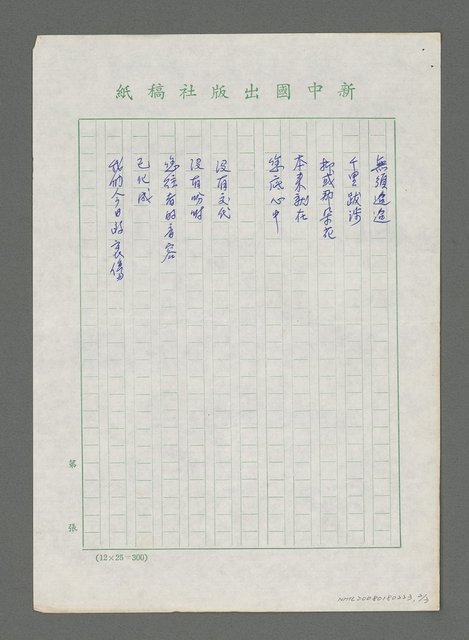 新中國出版社稿紙
無須遠途
千里跋涉
抑或那朵花
本來就在
您底心中
沒有交代
沒有吩咐
您往者的音容
已化成
我們今日的哀傷
第 張
(12×25=300)
NMTL20080180223, 3/3